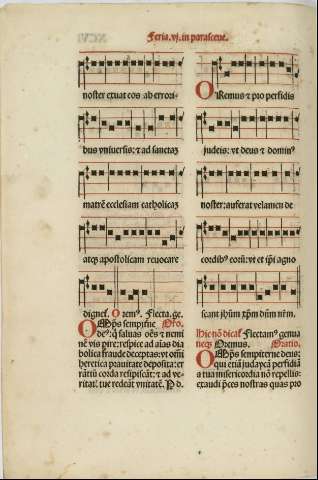 Feria. vj. in parasceue.
noster eruat eos ab errori-
bus vniuersis: et ad sanctaz
matrē ecclesiam catholicaz
atqz apostolicam reuocare
dignet. Oremꝰ. Flecta. ge.
Oro.
OMps sempitne
deꝰ: q̄ saluas oēs et nemi
nē vis pire: respice ad aīas dia
bolica fraude deceptas: vt omi
heretica prauitate deposita: er
rātiū corda resipiscāt: et ad ve-
ritat tue redeāt vnitatē. P d.
ORemus et pro perfidis
iudeis: vt deus et dominꝰ
noster; auferat velamen de
cordibꝰ eorū: vt et ip̄i agno
scant jh̄um xp̄m dn̄m nr̄m.
Hic nō dicat Flectamꝰ genua
neqz Oremus. Oratio.
OMps sempiterne deus:
qui etiā iudaycā perfidiā
a tua misericordia nō repellis:
exaudi p̄ces nostras quas pro